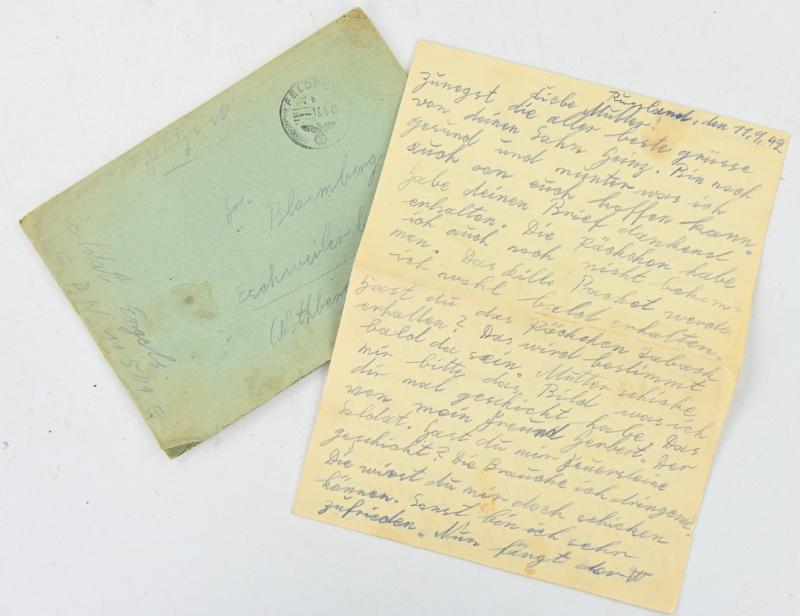 Feldpost
FELDPOST
Fr.
Bloemberg
Eschweiler
(Nothberg
Soldat Engels
Russland, den 11.9.42
Liebe Mutter!
Zunegst die aller beste grüsse
von deinen Sohn Heinz. Bin noch
Gesund und munter was ich
auch von euch hoffen kann.
Habe deinen Brief dankend
erhalten. Die Päckchen habe
ich auch noch nicht bekom-
men. Das dille Packet werde
ich wohl bald erhalten.
Hast du das Päckchen Taback
erhalten? Das wird bestimmt
bald da sein. Mutter schicke
mir bitte das Bild was ich
dir mal geschickt habe. Das
von mein Freund Herbert. Der
Soldat. Hast du mir Feuersteine
geschickt? Die Brauche ich dringend.
Die wirst du mir doch schicken
können. Sonst bin ich sehr
zufrieden. Nun fängt der W